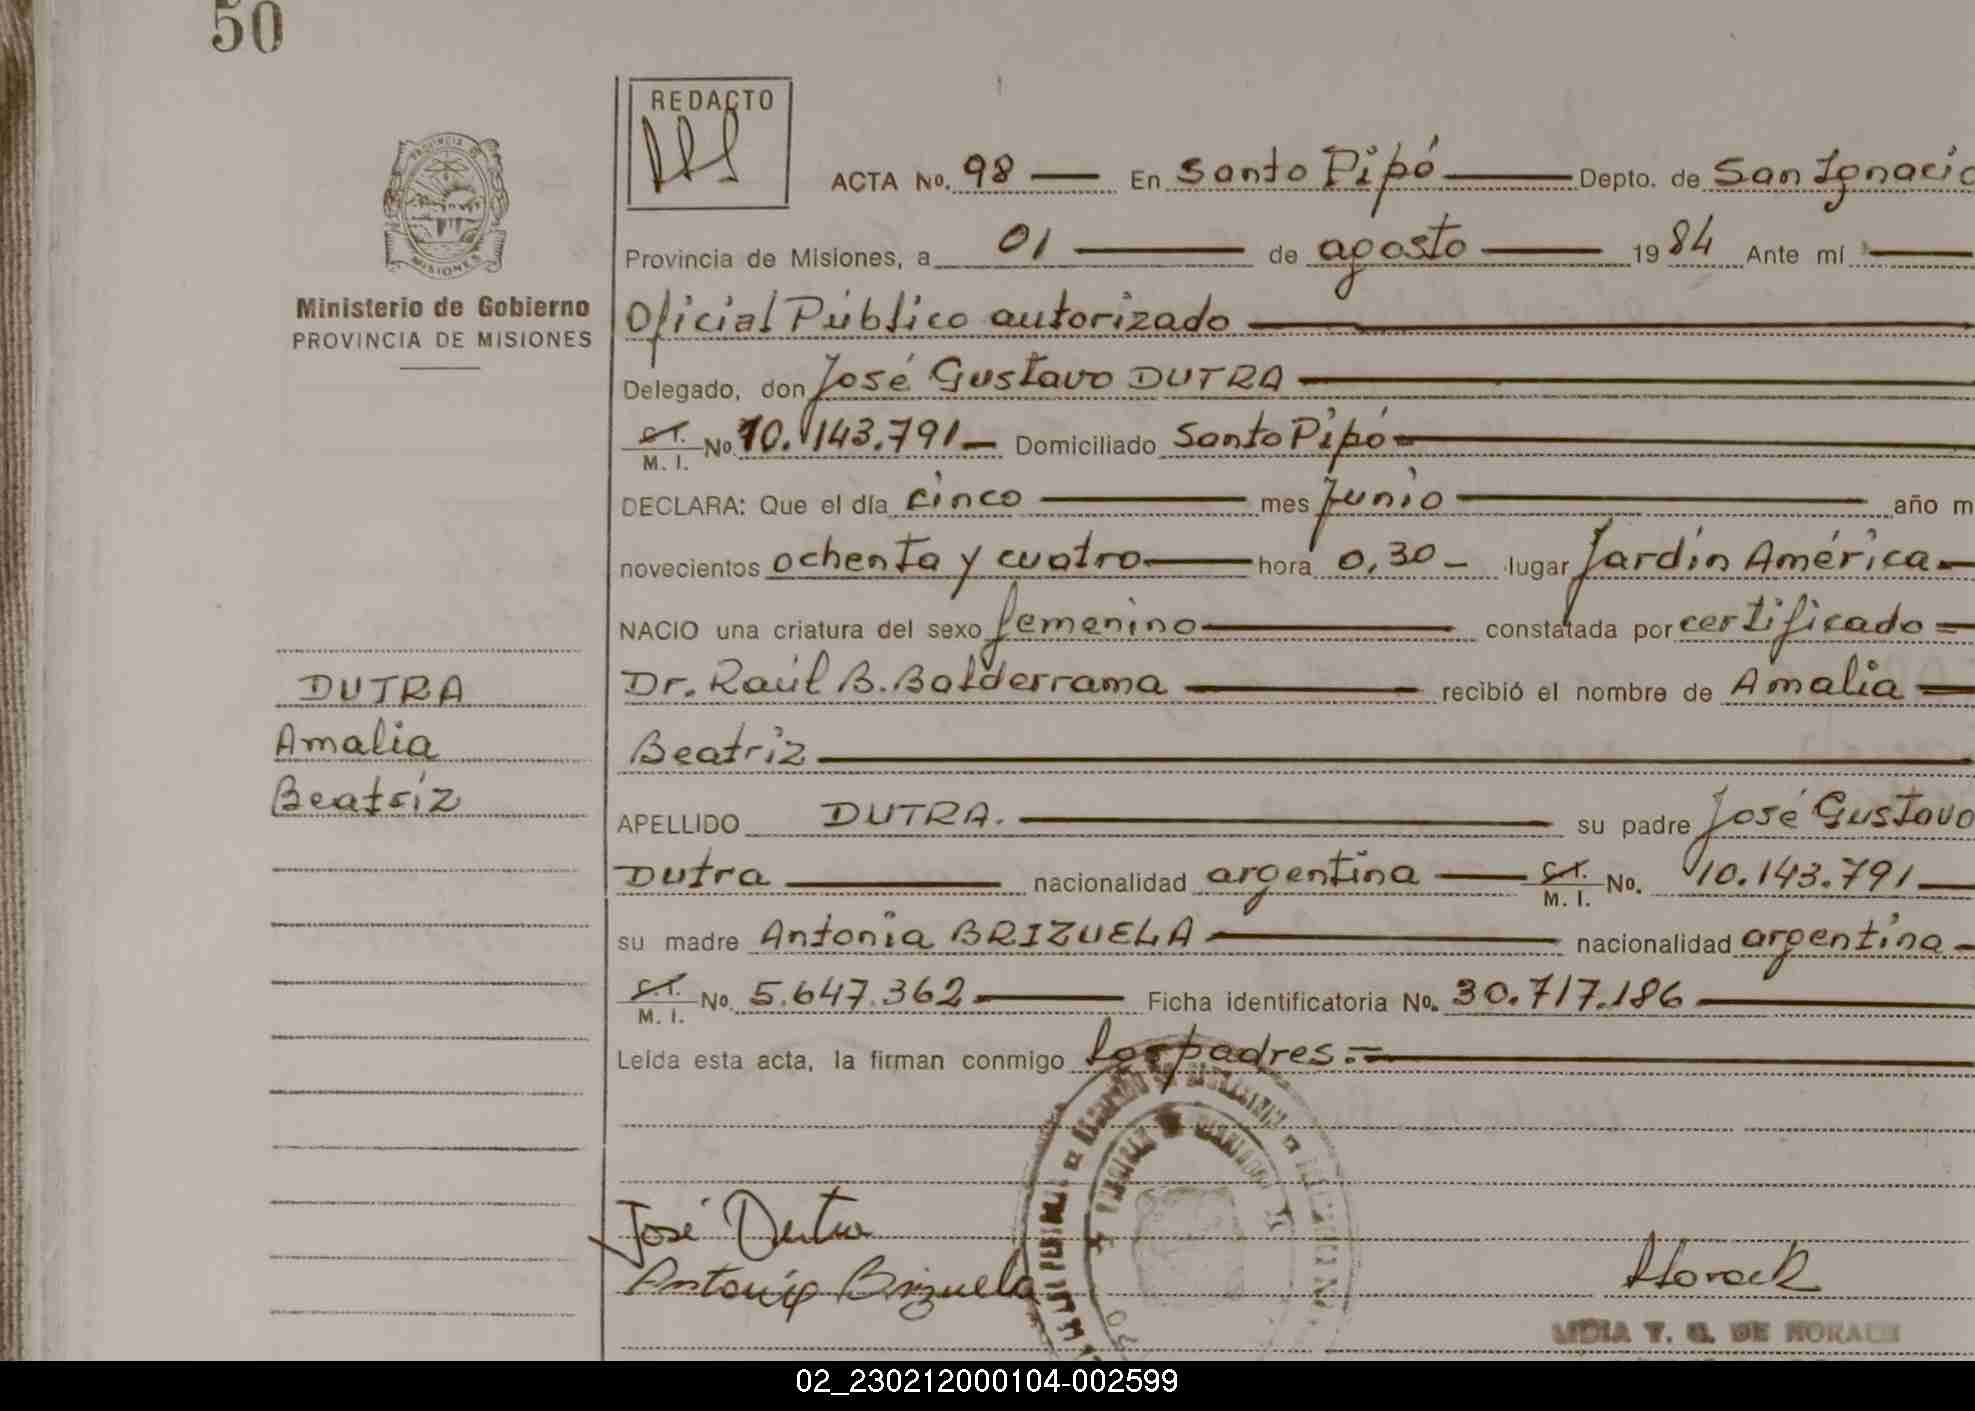 50
REDACTO
ACTA No. 98 En Santo Pipó Depto. de San Ignacio
Provincia de Misiones, a 01 de agosto 1984 Ante mí
Oficial Público autorizado
Delegado, don José Gustavo DUTRA
C.I. M. I. No. 10.143.791 Domiciliado Santo Pipó
DECLARA: Que el día cinco mes Junio año m
novecientos ochenta y cuatro hora 0,30 lugar Jardín América
NACIO una criatura del sexo femenino constatada por certificado
Dr. Raúl B. Balderrama recibió el nombre de Amalia
Beatriz
APELLIDO DUTRA. su padre José Gustavo
Dutra nacionalidad argentina C.I. M. I. No. 10.143.791
su madre Antonia BRIZUELA nacionalidad argentina
C.I. M. I. No. 5.647.362 Ficha identificatoria No. 30.717.186
Leída esta acta, la firman conmigo los padres.=
José Dutra
Antonia Brizuela
Horack
LIDIA T. G. DE HORACK
PROVINCIA DE
MISIONES
Ministerio de Gobierno
PROVINCIA DE MISIONES
DUTRA
Amalia
Beatriz
02_230212000104-002599